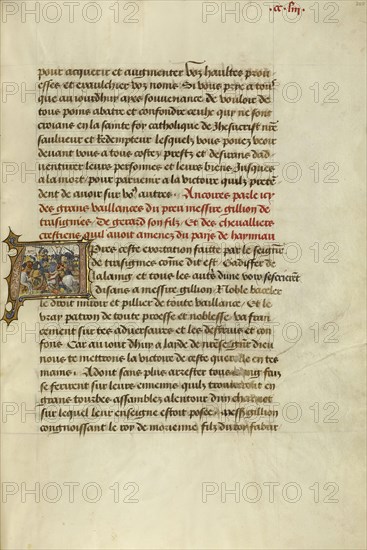 ·cc·liii·
pour acquerir et augmenter voz haultes prou
esses et exaulchier voz noms Si vous prie a tous
que au iourdhuy ayes souvenance de vouloir de
tous poins abatre et confondre ceulx qui ne sont
croians en la sainte foy catholique de Jhesucrist nre
saulveur et redempteur lesquelz vous pouez veoir
devant vous a tous costez prestz et desirans dad
venturer leurs personnes et leurs biens Jusques
a la mort pour parvenir a la victoire quilz preten
dent de avoir sur vo9 autres Ancoires parle icy
des grans vaillances du preu messire gillion de
trasignies De gerard son filz Et des chevalliers
crestiens quil avoit amenez du pays de haynnau
Apres ceste exortation faitte par le seignr
de trasignies come dit est Gadiffer de
lalaing et tous les autres dune voix sescrierent
disans a messire gillion Noble bacceler
le droit miroir et pillier de toute vaillance Et le
vray patron de toute proesse et noblesse va fran
cement sur tes adversaires et les destruis et con
fons Car au iour dhuy a laide de nreseignr dieu
nous te mettrons la victoire de ceste querelle en tes
mains Adont sans plus arester tous
se ferirent sur leurs ennemis quilz trouverent en
grans tourbes assamblez alentour dun chariot
sur lequel leur enseigne estoit posee Messe gillion
congnoissant le roy de morienne filz du roy fabur
PHOTO 12
PHOTO 12
PHOTO 12
PHOTO 12